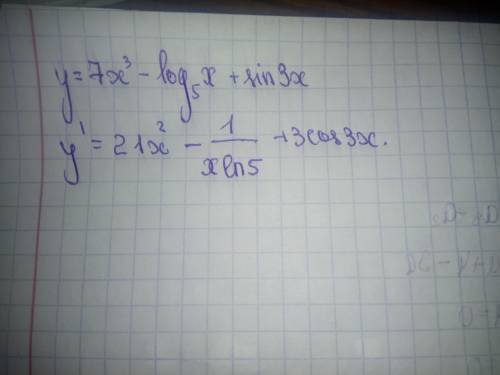 y=7x³ - log₅x + sin3x
y' = 21x² - 1/(xln5) + 3cos3x.